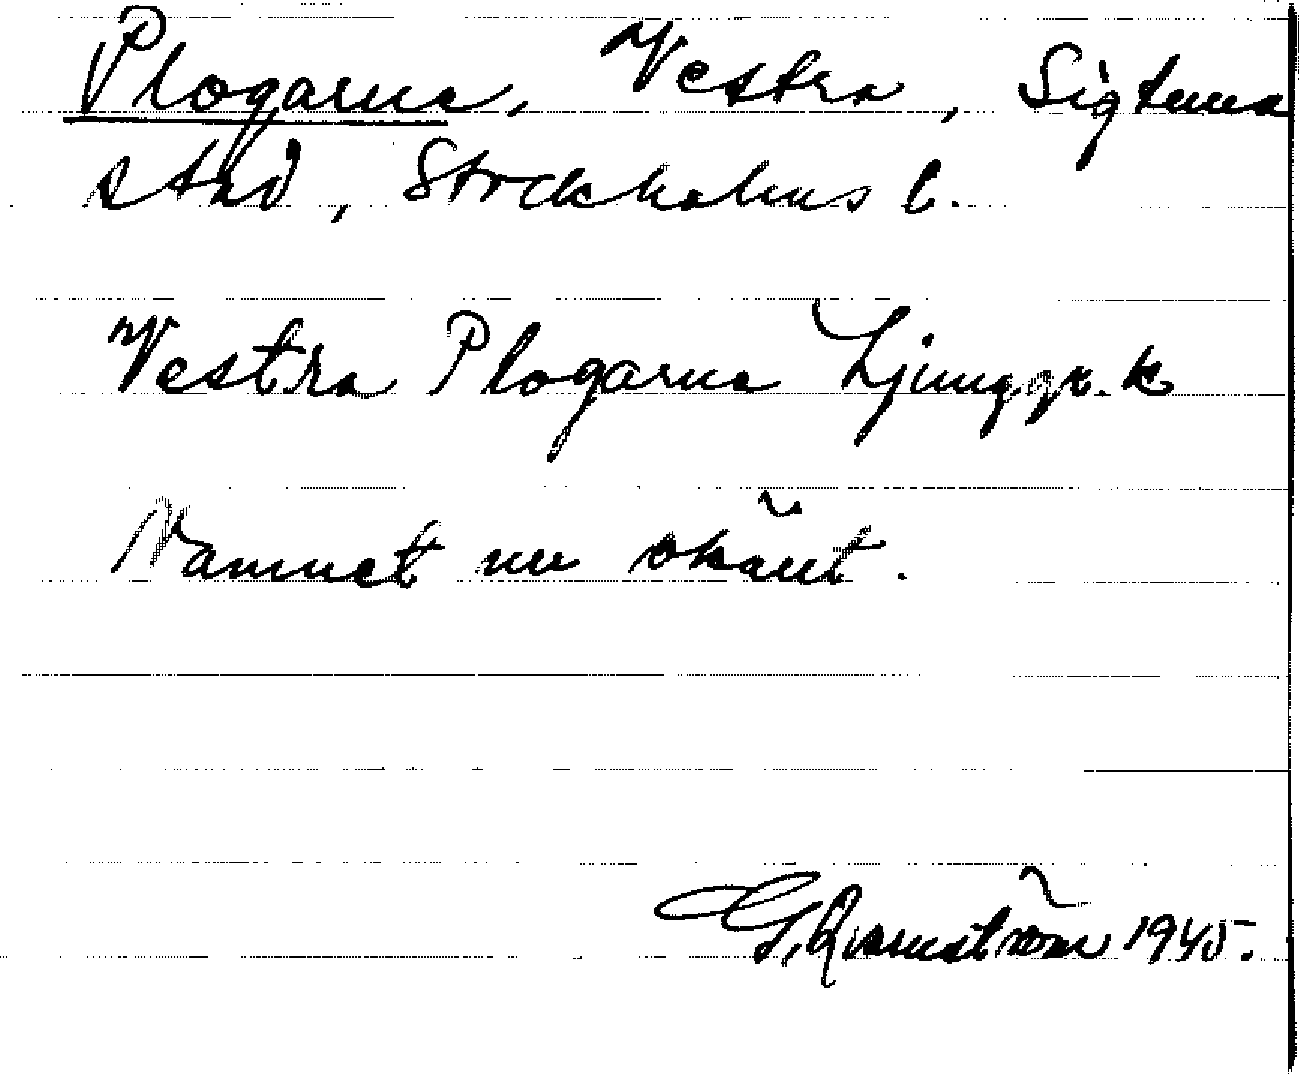 Plogarne, Vestra, Sigtuna
stad, Stockholms l.
Vestra Plogarne Ljunggr. k
Namnet nu okänt.
G. Qvarnström 1945.